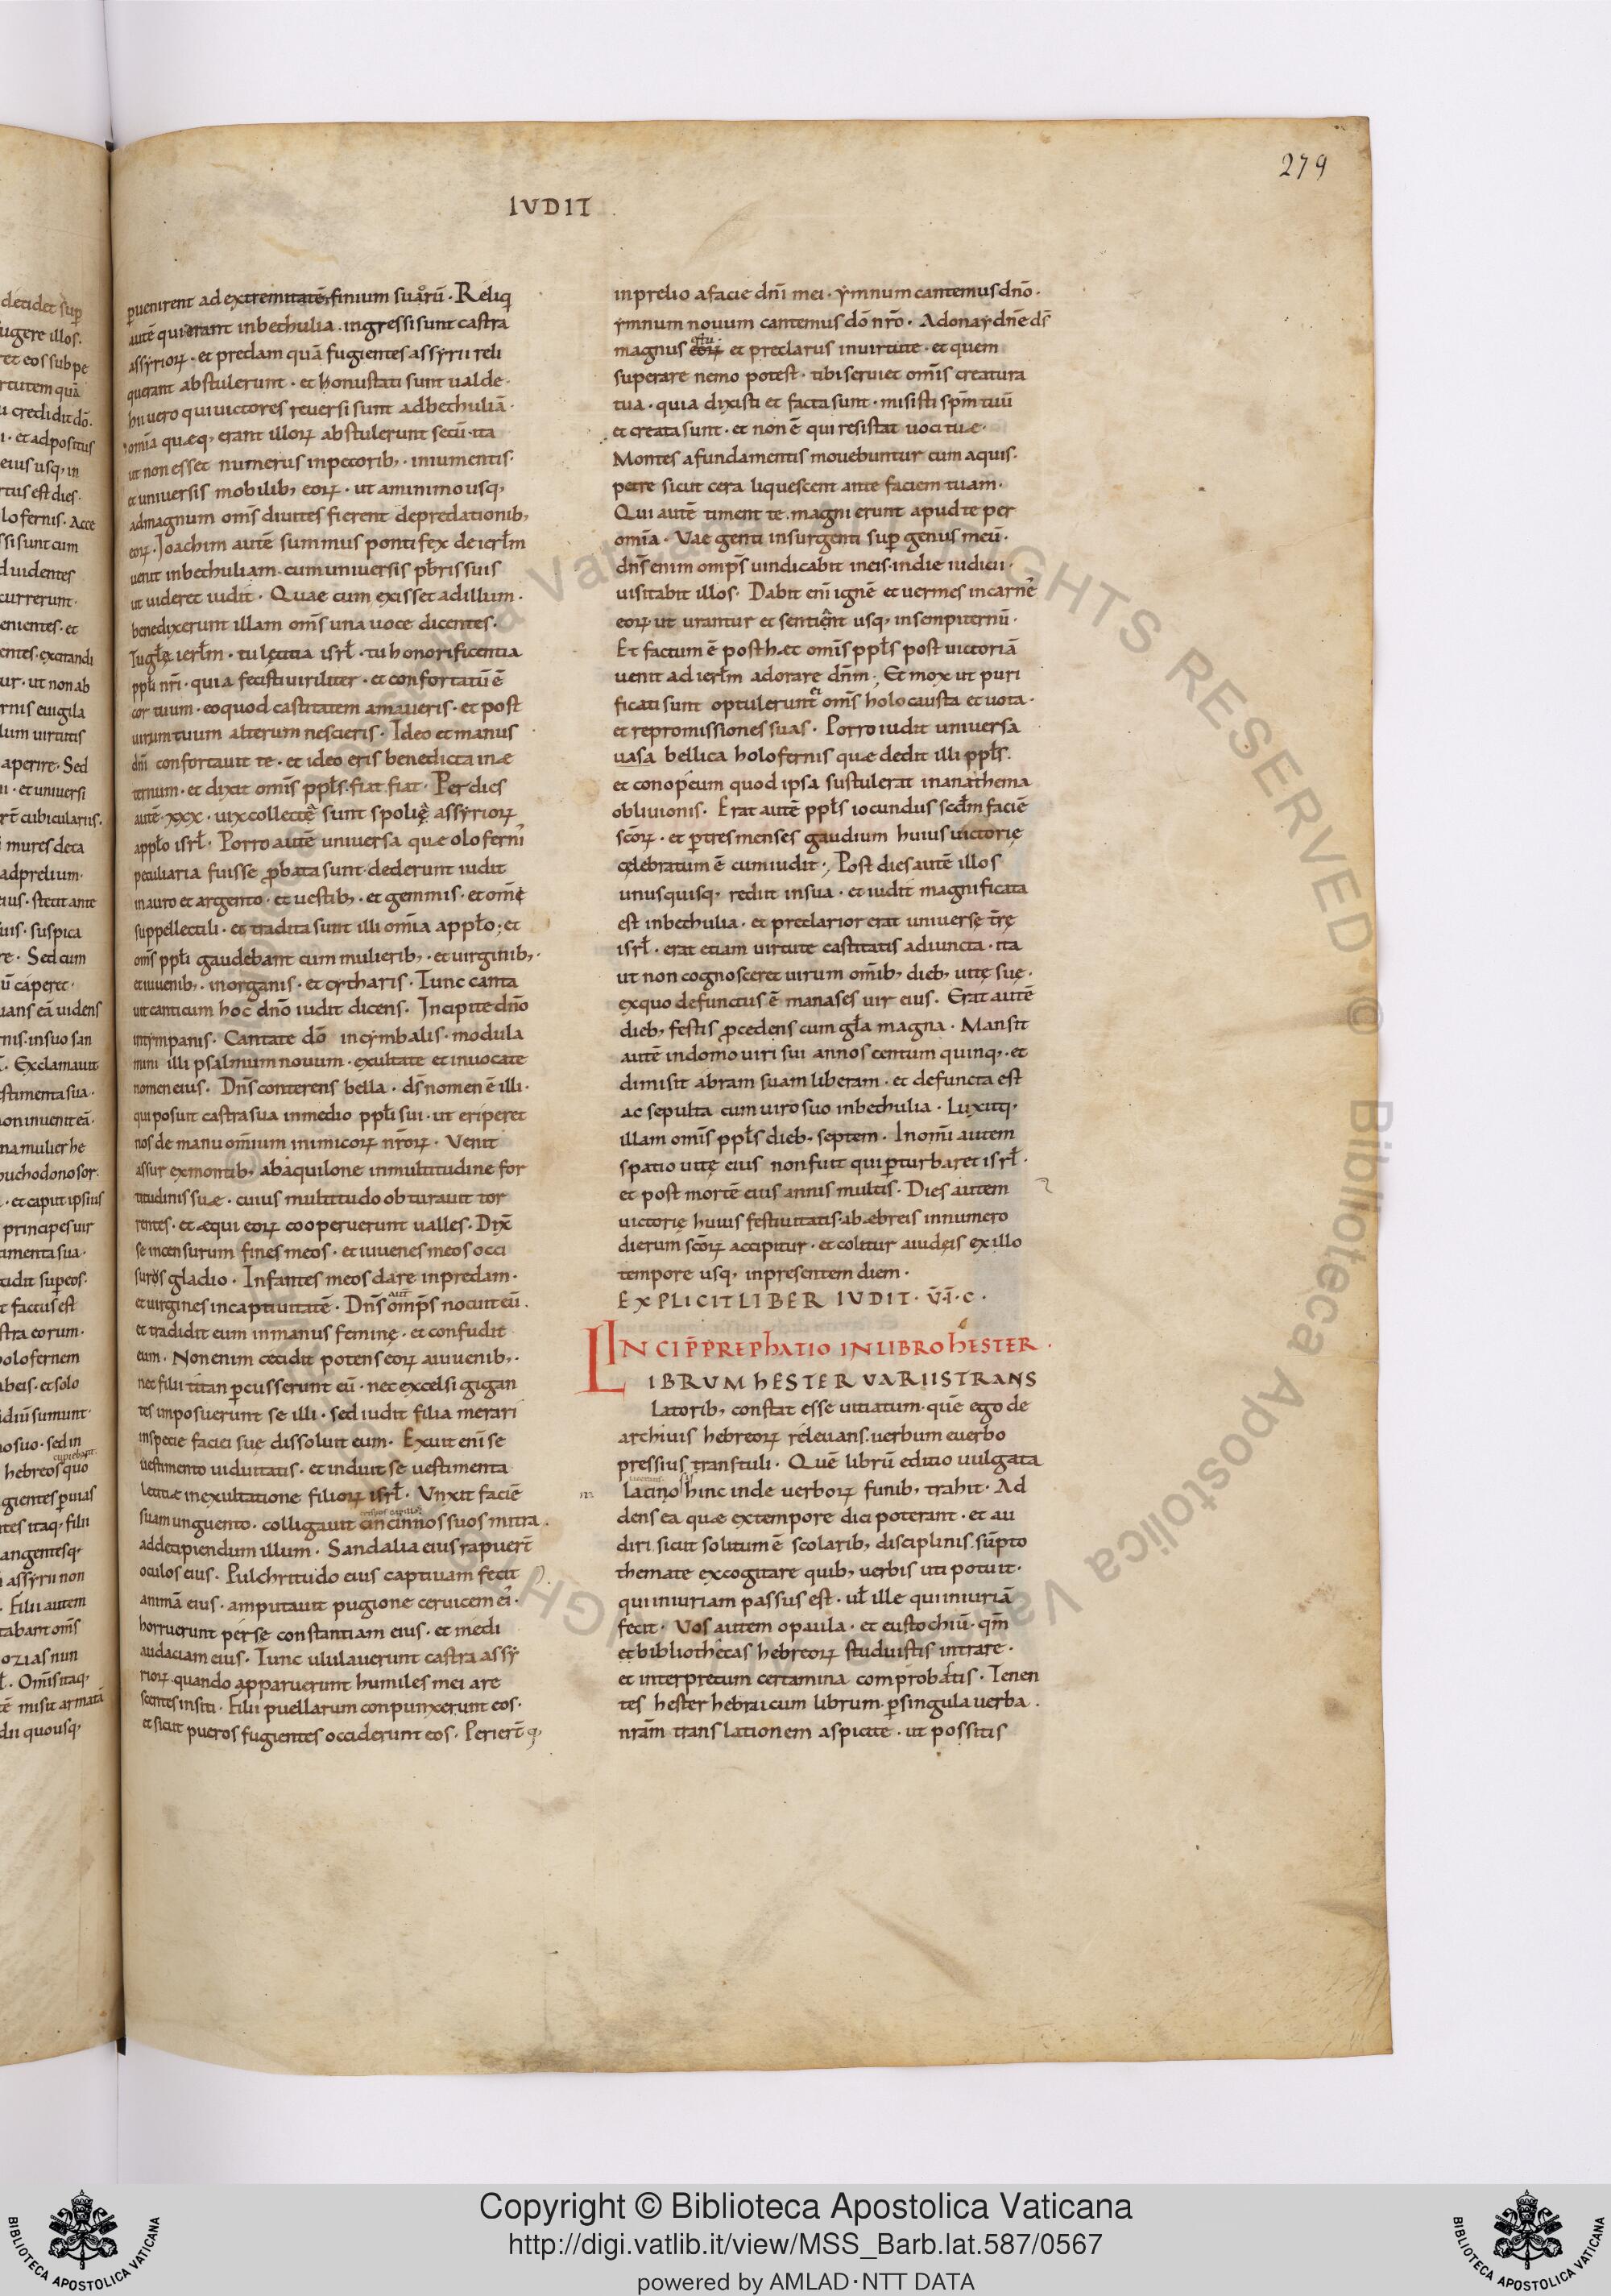 279
IVDIT
ꝑuenirent ad extremitatē finium suarū · Reliq
autē qui erant inbethulia · ingressi sunt castra
assyrioꝝ · et predam quā fugientes assyrii reli
querant abstulerunt · et honustati sunt ualde ·
hii uero qui uictores reuersi sunt adbethuliā ·
omīa quæq; erant illoꝝ abstulerunt secū · ita
ut non esset numerus inpecorib; · iniumentis ·
et uniuersis mobilib; eoꝝ · ut aminimo usq;
admagnum om̄s diuites fierent depredationib;
eoꝝ · Joachim autē summus pontifex deierl̄m
uenit inbethuliam · cum uniuersis pb̄ris suis
ut uideret iudit · Quae cum exisset adillum ·
benedixerunt illam om̄s una uoce dicentes ·
Tu gl̄ę ierl̄m · tu lętitia isrl̄ · tu honorificentia
ppl̄i nr̄i · quia fecisti uiriliter · et confortatū ē
cor tuum · eoquod castitatem amaueris · et post
uirum tuum alterum nescieris · Ideo et manus
dn̄i confortauit te · et ideo eris benedicta inæ
ternum · et dixit omīs ppl̄s · fiat fiat · Per dies
autē · xxx · uix collectę sunt spolię assyrioꝝ
appl̄o isrl̄ · Porro autē uniuersa quæ oloferni
peculiaria fuisse ꝓbata sunt · dederunt iudit
inauro et argento · et uestib; · et gemmis · et om̄e
suppellectili · et tradita sunt illi omīa appl̄o ; et
om̄s ppl̄i gaudebant cum mulierib; · et uirginib; ·
et iuuenib; · inorganis · et cytharis · Tunc canta
uit canticum hoc dn̄o iudit dicens · Incipite dn̄o
intympanis · Cantate dō incymbalis · modula
mini illi psalmum nouum · exultate et inuocate
nomen eius · Dn̄s conterens bella · ds̄ nomen ē illi ·
qui posuit castra sua inmedio ppl̄i sui · ut eriperet
nos de manu omīum inimicoꝝ nr̄oꝝ · Venit
assur exmontib; abaquilone inmultitudine for
titudinis suæ · cuius multitudo obturauit tor
rentes · et æqui eoꝝ cooperuerunt ualles · Dix̄
se incensurum fines meos · et iuuenes meos occi
suros gladio · Infantes meos dare inpredam ·
et uirgines incaptiuitatē · Dn̄s aut̄ omp̄s nocuit eū ·
et tradidit eum inmanus feminę · et confudit
eum · Non enim cecidit potens eoꝝ aiuuenib; ·
nec filii titan ꝑcusserunt eū · nec excelsi gigan
tes imposuerunt se illi · sed iudit filia merari
inspecie faciei sue dissoluit eum · Exuit enī se
uestimento uiduitatis · et induit se uestimenta
letitiæ inexultatione filioꝝ isrl̄ · Vnxit faciē
suam unguento · colligauit cincinnos suos mitra ·
addecipiendum illum · Sandalia eius rapuer̄t
oculos eius · Pulchritudo eius captiuam fecit
animā eius · amputauit pugione ceruicem ei᾿ ·
horruerunt perse constantiam eius · et medi
audaciam eius · Tunc ululauerunt castra assy
rioꝝ quando apparuerunt humiles mei are
scentes insiti · Filii puellarum conpunxerunt eos ·
et sicut pueros fugientes occiderunt eos · Perier̄t q;
inprelio afacie dn̄i mei · ymnum cantemus dn̄o ·
ymnum nouum cantemus dō nr̄o · Adonay dn̄e ds̄
magnus eoꝝ et preclarus inuirtute · et quem
superare nemo potest · tibi seruiet omīs creatura
tua · quia dixisti et facta sunt · misisti sp̄m tuū
et creata sunt · et non ē qui resistat uoci tuæ ·
Montes afundamentis mouebuntur cum aquis ·
petre sicut cera liquescent ante faciem tuam ·
Qui autē timent te · magni erunt apud te per
omīa · Vae genti insurgenti suꝑ genus meū ·
dn̄s enim omp̄s uindicabit ineis · indie iudicii ·
uisitabit illos · Dabit enī ignē et uermes incarnē
eoꝝ ut urantur et sentient usq; insempiternū ·
Et factum ē post hæc omīs ppl̄s post uictoriā
uenit adierl̄m adorare dn̄m ; Et mox ut puri
ficati sunt optulerunt ei om̄s holocausta et uota ·
et repromissiones suas · Porro iudit uniuersa
uasa bellica holofernis quæ dedit illi ppl̄s ·
et conopeum quod ipsa sustulerat inanathema
obliuionis · Erat autē ppl̄s iocundus scd̄m faciē
sc̄oꝝ · et ꝑ tres menses gaudium huius uictorię
cęlebratum ē cum iudit ; Post dies autē illos
unusquisq; rediit insua · et iudit magnificata
est inbethulia · et preclarior erat uniuersę tr̄ę
isrl̄ · erat etiam uirtute castitatis adiuncta · ita
ut non cognosceret uirum om̄ib; dieb; uitę suę ·
exquo defunctus ē manases uir eius · Erat autē
dieb; festis ꝓcedens cum gl̄a magna · Mansit
autē indomo uiri sui annos centum quinq; · et
dimisit abram suam liberam · et defuncta est
ac sepulta cum uiro suo inbethulia · Luxitq;
illam omīs ppl̄s dieb; septem · Inomī autem
spatio uitę eius non fuit qui ꝑturbaret isrl̄ ·
et post mortē eius annis multis · Dies autem
uictorię huius festiuitatis · abæbreis innumero
dierum sc̄oꝝ accipitur · et colitur aiudęis exillo
tempore usq; inpresentem diem ·
EXPLICIT LIBER IUDIT · V̄·Ī· C ·
INCIP̄ PREPHATIO INLIBRO HESTER ·
LIBRVM HESTER VARIIS TRANS
Latorib; constat esse uitiatum · quē ego de
archiuis hebreoꝝ releuans · uerbum euerbo
pressius transtuli · Quē librū editio uulgata
latino hinc inde uerboꝝ funib; trahit · Ad
dens ea quæ extempore dici poterant · et au
diri · sicut solitum ē scolarib; disciplinis · sūpto
themate excogitare quib; uerbis uti potuit ·
qui iniuriam passus est · ul̄ ille qui iniuriā
fecit · Vos autem opaula · et eustochiū · qm̄
et bibliothecas hebreoꝝ studuistis intrare ·
et interpretum certamina comprobatis · Tenen
tes hester hebraicum librum · ꝑ singula uerba ·
nr̄am translationem aspicite · ut possitis
Copyright © Biblioteca Apostolica Vaticana
http://digi.vatlib.it/view/MSS_Barb.lat.587/0567
powered by AMLAD·NTT DATA